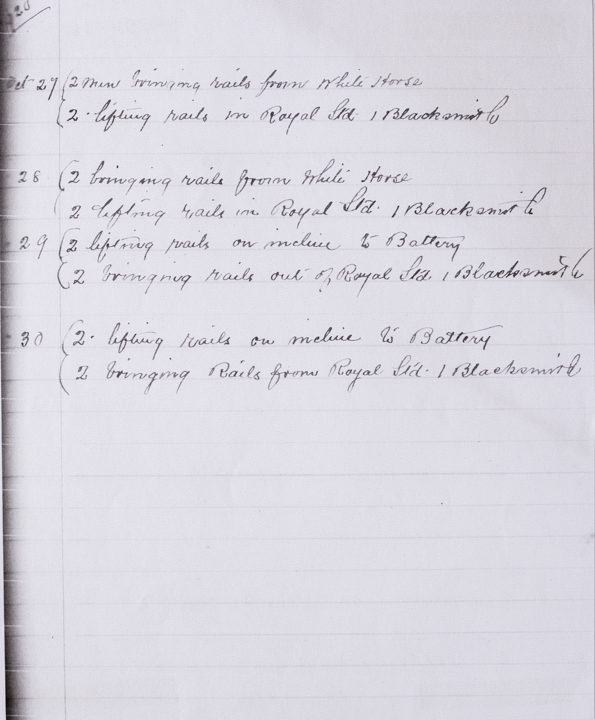 1920
Oct 27 (2 men bringing rails from White Horse
2 lifting rails in Royal Std. 1 Blacksmith
28 (2 bringing rails from White Horse
2 lifting rails in Royal Std. 1 Blacksmith
29 (2 lifting rails on incline to Battery
2 bringing rails out of Royal Std. 1 Blacksmith
30 (2 lifting rails on incline to Battery
2 bringing Rails from Royal Std. 1 Blacksmith